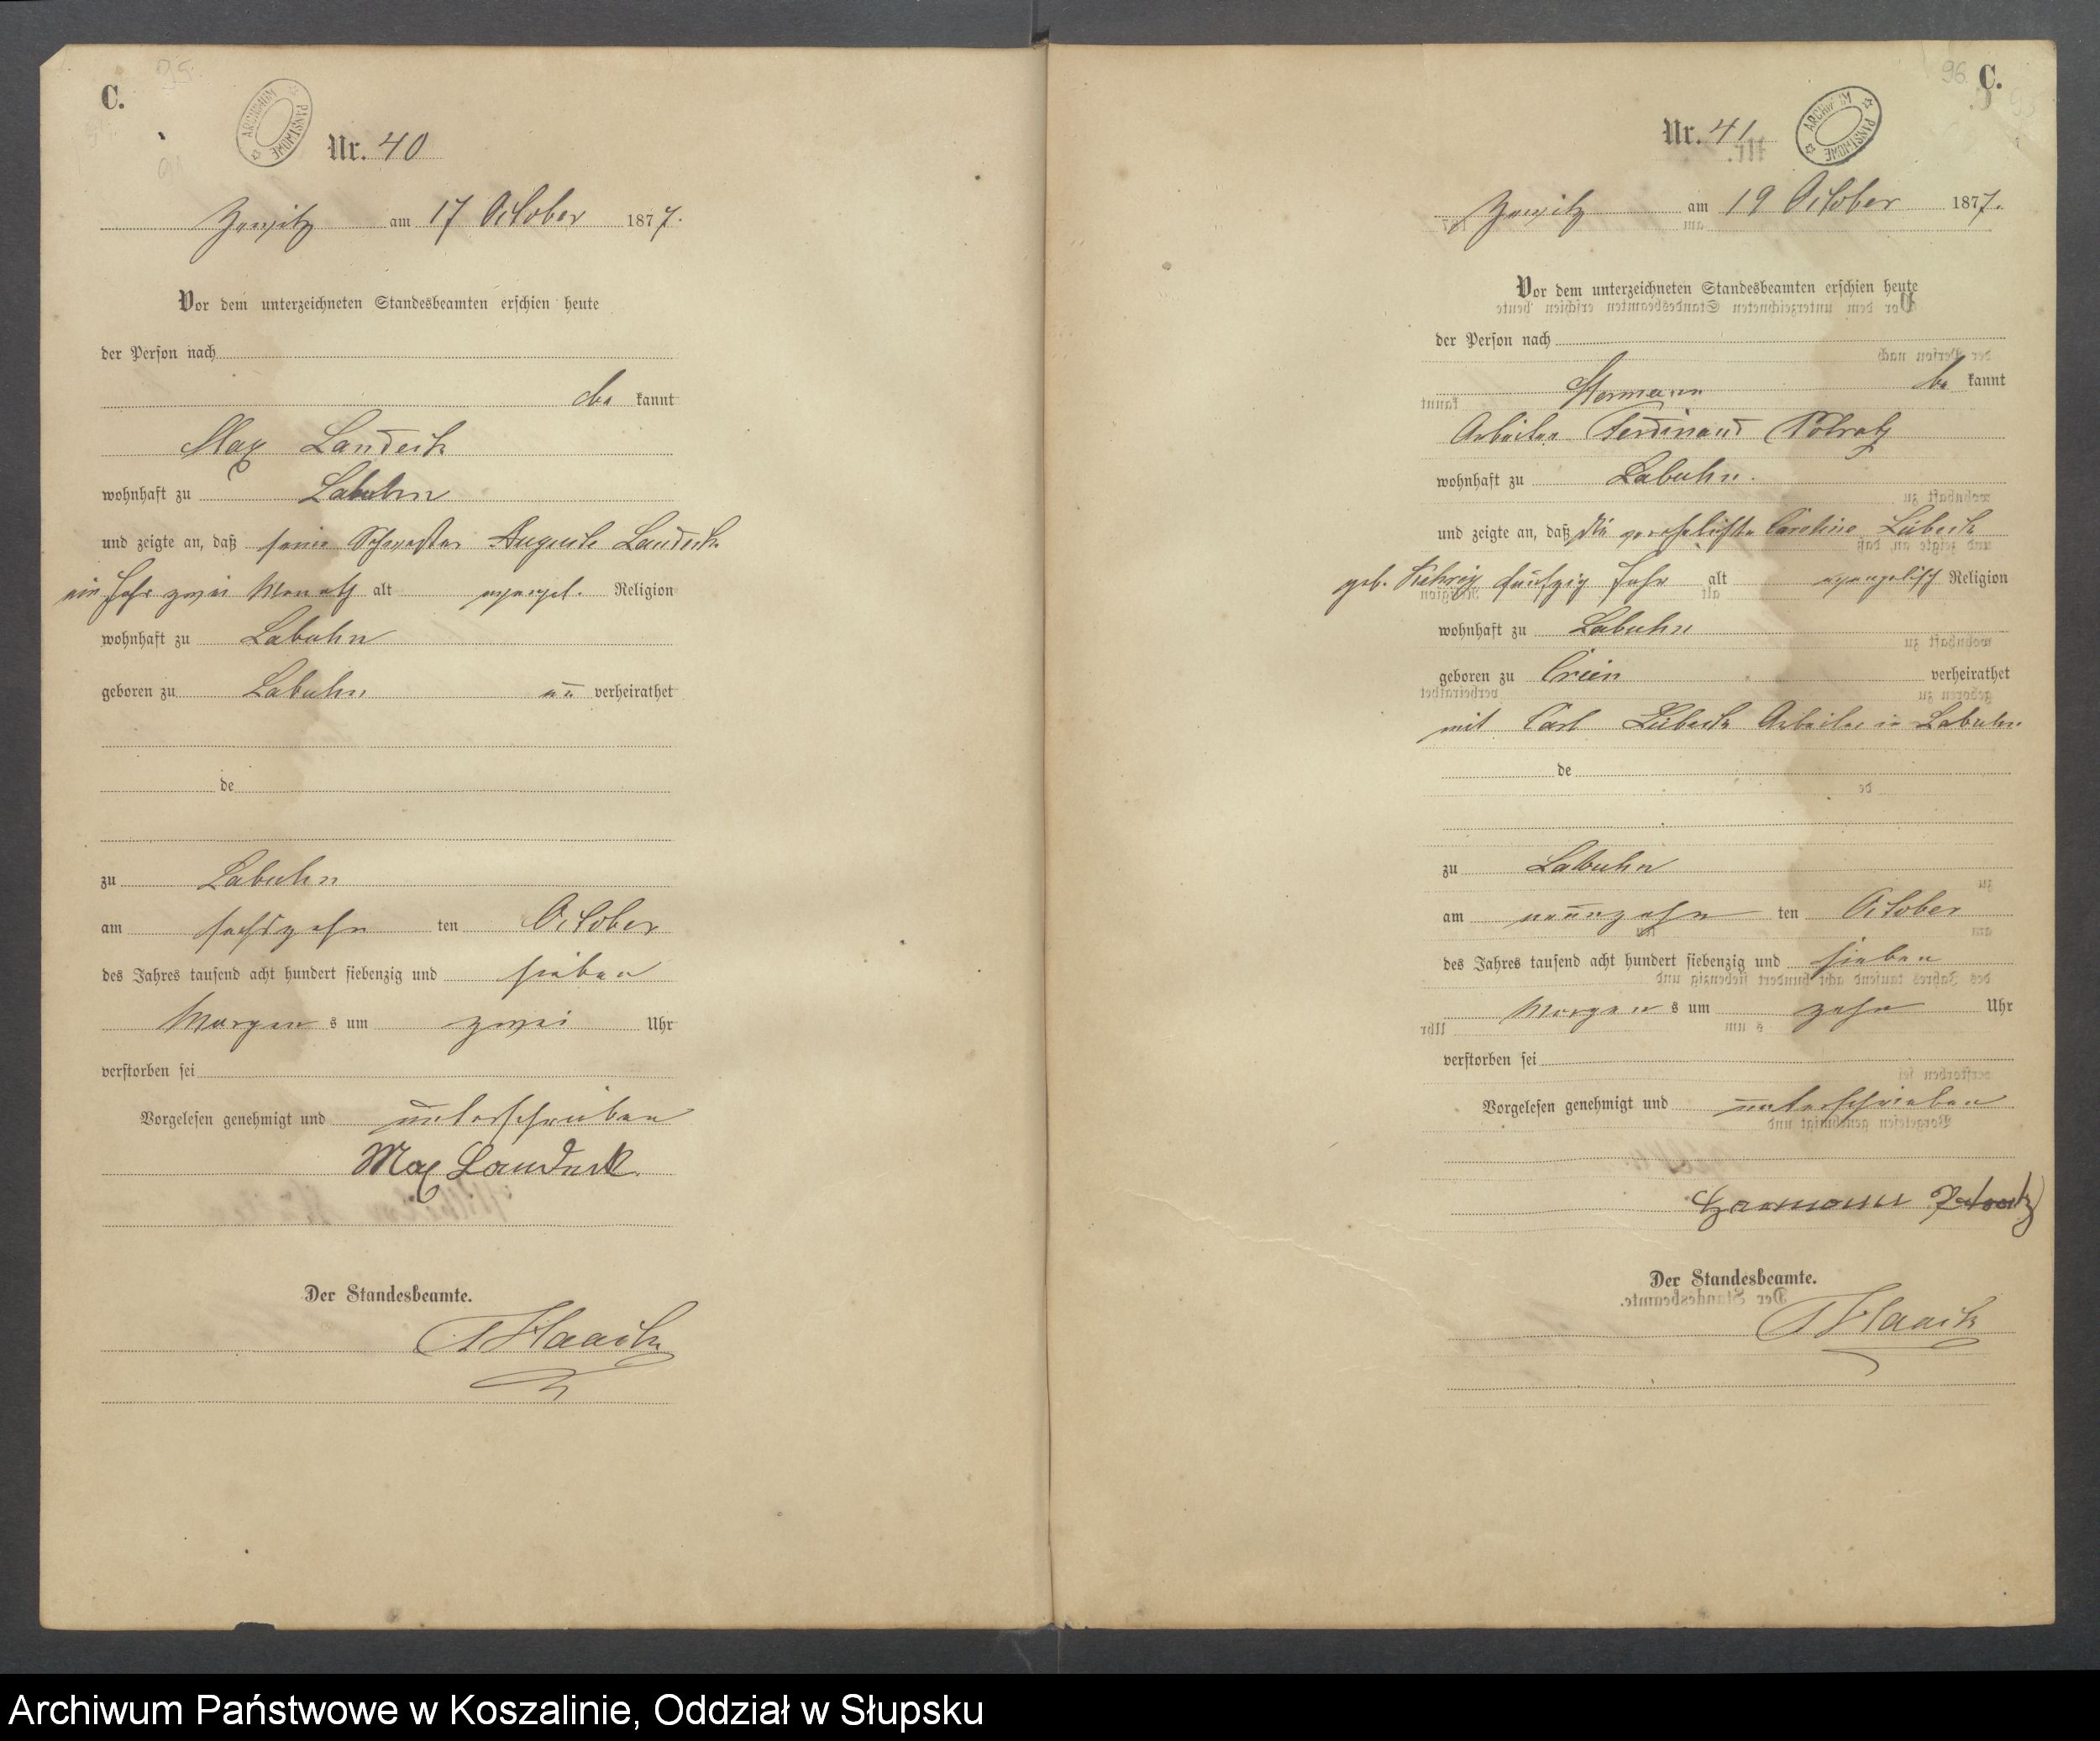 C.
Nr. 40
Zewitz am 17 October 1877.
Vor dem unterzeichneten Standesbeamten erschien heute
der Person nach
be kannt
Max Landeck
wohnhaft zu Labuhn
und zeigte an, daß seine Schwester Auguste Landeck
ein Jahr zwei Monat alt evangel. Religion
wohnhaft zu Labuhn
geboren zu Labuhn un verheirathet
de
zu Labuhn
am sechszehn ten October
des Jahres tausend acht hundert siebenzig und sieben
Morgen s um zwei Uhr
verstorben sei
Vorgelesen genehmigt und unterschrieben
Max Landeck
Der Standesbeamte.
Haack
96 C.
Nr. 41
Zewitz am 19 October 1877.
Vor dem unterzeichneten Standesbeamten erschien heute
der Person nach
be kannt
Hermann
Arbeiter Ferdinand Potratz
wohnhaft zu Labuhn.
und zeigte an, daß die verehelichte Caroline Lübeck
geb. fünfzig Jahr alt evangelisch Religion
wohnhaft zu Labuhn
geboren zu Crien verheirathet
mit Carl Lübeck Arbeiter in Labuhn
de
zu Labuhn
am neunzehn ten October
des Jahres tausend acht hundert siebenzig und sieben
Morgen s um zehn Uhr
verstorben sei
Vorgelesen genehmigt und unterschrieben
Hermann Potratz
Der Standesbeamte.
Haack
ARCHIWUM PAŃSTWOWE
ARCHIWUM PAŃSTWOWE
Archiwum Państwowe w Koszalinie, Oddział w Słupsku